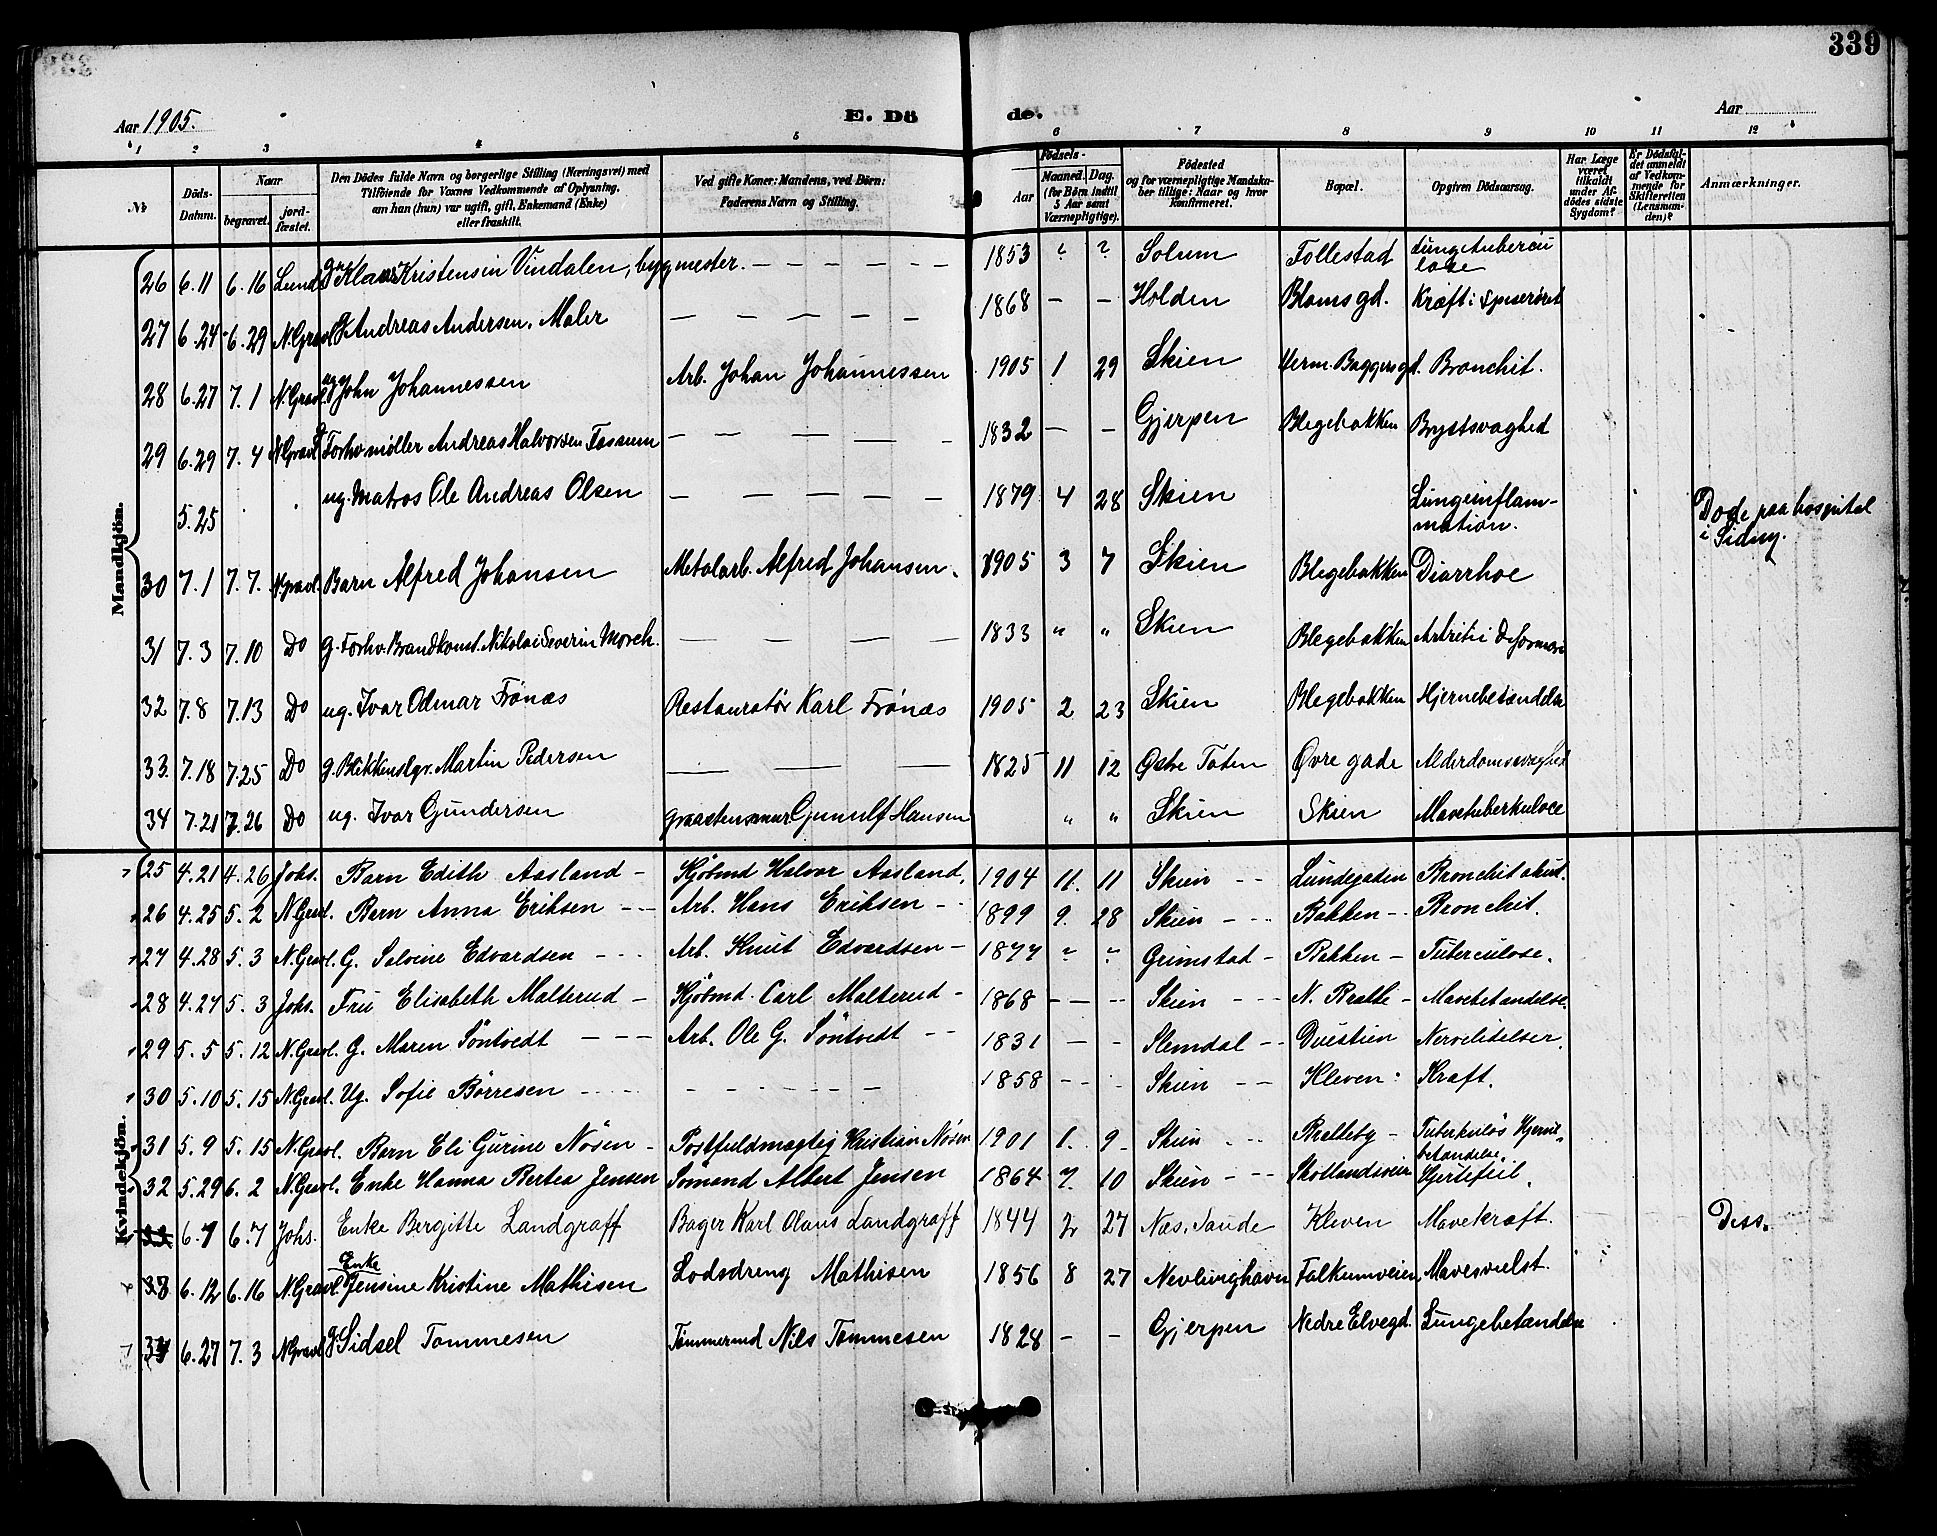 339
Aar 1905. E. Dö de. Aar
1 2 3 4 5 6 7 8 9 10 11 12
№ Döds-Datum. Naar begravet. jord-fæstet. Den Dödes fulde Navn og borgerlige Stilling (Næringsvei) med Tilföiende for Voxnes Vedkommende af Oplysning, om han (hun) var ugift, gift, Enkemand (Enke) eller fraskilt. Ved gifte Koner: Mandens, ved Börn: Faderens Navn og Stilling. Födsels- Aar Maaned. Dag. (for Börn indtil 5 Aar samt Værnepligtige). Födested og for værnepligtige Mandskaber tillige: Naar og hvor konfirmeret. Bopæl. Opgiven Dödsaarsag. Har Læge været tilkaldt under Afdödes sidste Sygdom? Er Dödsfaldet anmeldt af Vedkommende for Skifteretten (Lensmanden)? Anmærkninger.
Mandkjön.
26 6.11 6.16 Lund Klaus Kristensen Vindalen, bygmester. — — — — — — 1853 ? ? Solum Follestad Lungetuberculose
27 6.24 6.29 N.Gravl. g Andreas Andersen, Maler — — — — — 1868 — — Holden Blomsgd. Kræft i Spiserøret
28 6.27 7.1 N.Gravl. ug John Johannessen Arb. Johan Johannessen 1905 1 29 Skien Herm. Baggersgd. Bronchit.
29 6.29 7.4 N.Gravl. Forhv møller Andreas Halvorsen Fossum — — — — — 1832 — — Gjerpen Blegebakken Brystsvaghed
5.25 ug. Matros Ole Andreas Olsen — — — — — 1879 4 28 Skien Lungeinflammation. Døde paa hospital i Sidney.
30 7.1 7.7. N.gravl. Barn Alfred Johansen Metalarb. Alfred Johansen. 1905 3 7 Skien Blegebakken Diarrhoe
31 7.3 7.10 Do g. Forhv. Brandkonst. Nikolai Severin Morch. — — — — 1833 " " Skien Blegebakken Artriti Deformans
32 7.8 7.13 Do ug. Ivar Odmar Frönæs Restauratör Karl Frönæs 1905 2 23 Skien Blegebakken Hjernebetændelse
33. 7.18 7.25 Do g. Blikkenslgr. Martin Pedersen — — — 1825 11 12 Østre Toten Øvre gade Alderdomssvaghed
34 7.21 7.26 Do ug. Ivar Gundersen graastensmur Gunulf Hansen " " Skien Skien Mavetuberkulose
Kvindekjön.
25 4.21 4.26 Johs. Barn Edith Aasland - Kjöbmd Halvor Aasland, 1904 11. 11 Skien - - Lundegaden Bronchit akut.
26 4.25 5.2 N.Gravl. Barn Anna Eriksen - - Arb. Hans Eriksen - - 1899 9. 28 Skien - - - Bakken - - Bronchit.
27 4.28 5.3 N.Gravl. G. Salvine Edvardsen - - - Arb. Knut Edvardsen - 1877 ? ? Grimstad - Bakken - Tuberculose.
28 4.27 5.3 Johs. Fru Elisabeth Malterud - Kjöbmd. Carl Malterud - 1868 - - - - Skien - - - N. Bratte - Mavebetændelse.
29 5.5 5.12 N.Gravl. G. Maren Söntvedt - - - Arb. Ole G. Söntvedt - - 1831 - - Slemdal - - Duestien Nervelidelser.
30 5.10 5.15 N.Gravl. Ug. Sofie Börresen - - - - - - - - - - 1858 - - - Skien - - Kleven: Kræft.
31 5.9 5.15 N.Gravl. Barn Eli Gurine Nösen - Postfuldmægtig Kristian Nösen 1901 1. 9 Skien - - - Bratteby - Tuberkulös Hjernebetændelse.
32 5.29 6.2 N.Gravl. Enke Hanna Bertea Jensen Sömand Albert Jensen 1864 7. 10 Skien - - - Skotlandsveien Hjertefeil.
33 6.1 6.7 Johs. Enke Bergitte Landgraff Bager Karl Olaus Landgraff 1844 2 27 Næs, Saude Kleven Mavekræft. Diss.
33 6.12 6.16 N.Gravl. Enke Jensine Kristine Mathisen Lodsdreng Mathisen 1856 8 27 Nevlunghavn Falkumveien, Mavesvulst.
34 6.27 7.3 N.Gravl. g. Sidsel Tommesen Tömmermd Nils Tommesen 1828 - - Gjerpen Nedre Elvegd. Lungebetændelse